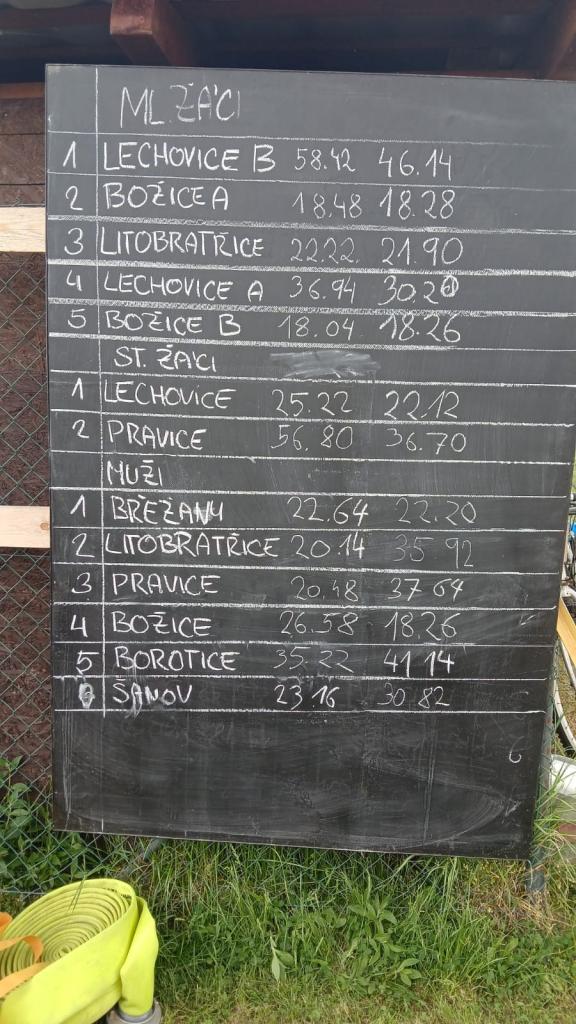 ML.ŽÁCI
1 LECHOVICE B 58.42 46.14
2 BOŽICE A 18.48 18.28
3 LITOBRATŘICE 22.22. 21.90
4 LECHOVICE A 36.94 30.20
5 BOŽICE B 18.04 18.26
ST. ŽÁCI
1 LECHOVICE 25.22 22.12
2 PRAVICE 56.80 36.70
MUŽI
1 BŘEŽANY 22.64 22.20
2 LITOBRATŘICE 20.14 35 92
3 PRAVICE 20.48 37 64
4 BOŽICE 26.58 18.26
5 BOROTICE 35.22 41 14
ŠANOV 23 16 30 82